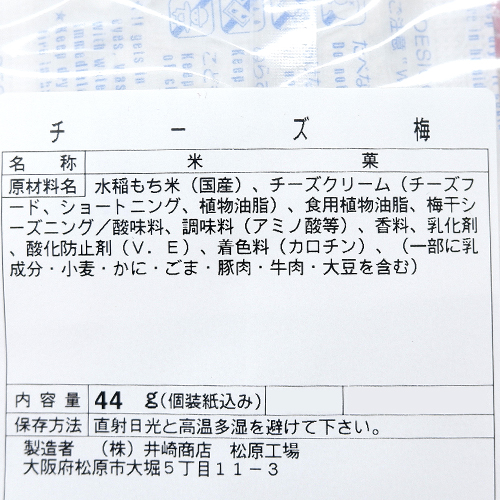 チーズ梅
名称 米菓
原材料名 水稲もち米（国産）、チーズクリーム（チーズフ
ード、ショートニング、植物油脂）、食用植物油脂、梅干シ
ーズニング／酸味料、調味料（アミノ酸等）、香料、乳化剤
、酸化防止剤（Ｖ．Ｅ）、着色料（カロチン）、（一部に乳
成分・小麦・かに・ごま・豚肉・牛肉・大豆を含む）
内容量 44 g(個装紙込み)
保存方法 直射日光と高温多湿を避けて下さい。
製造者 （株）井崎商店 松原工場
大阪府松原市大堀５丁目１１－３